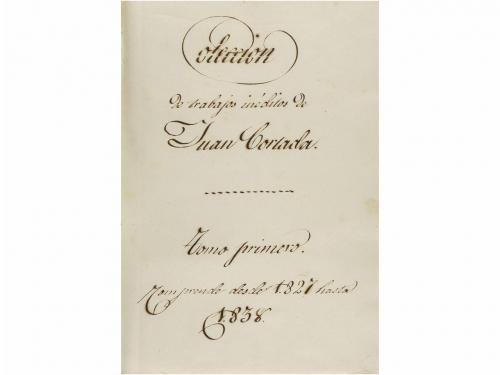 Coleccion
de trabajos inéditos de
Juan Cortada.
Tomo primero.
Comprende desde 1.827 hasta
1.838.